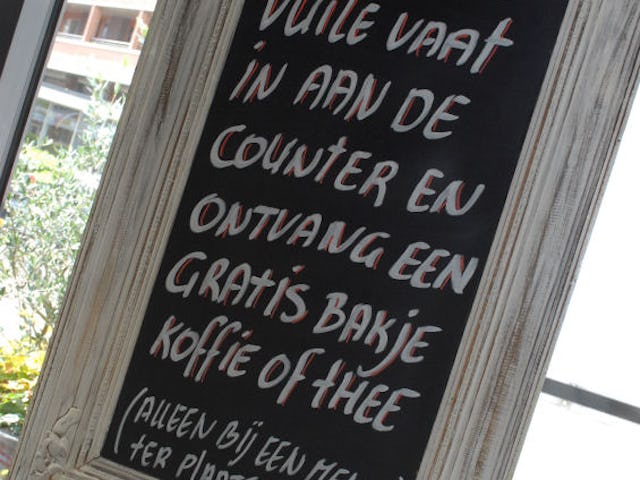 VUILE VAAT
IN AAN DE
COUNTER EN
ONTVANG EEN
GRATIS BAKJE
KOFFIE OF THEE
(ALLEEN BIJ EEN
TER